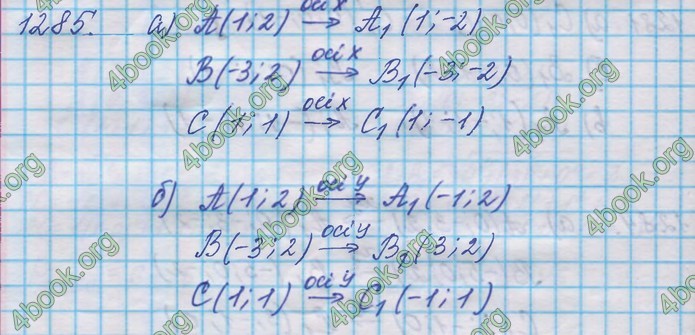 1285. а) A(1;2) осі x → A₁(1;-2)
B(-3;2) осі x → B₁(-3;-2)
C(1;1) осі x → C₁(1;-1)
б) A(1;2) осі y → A₁(-1;2)
B(-3;2) осі y → B₁(3;2)
C(1;1) осі y → C₁(-1;1)
4book.org
4book.org
4book.org
4book.org
4book.org
4book.org
4book.org
4book.org
4book.org